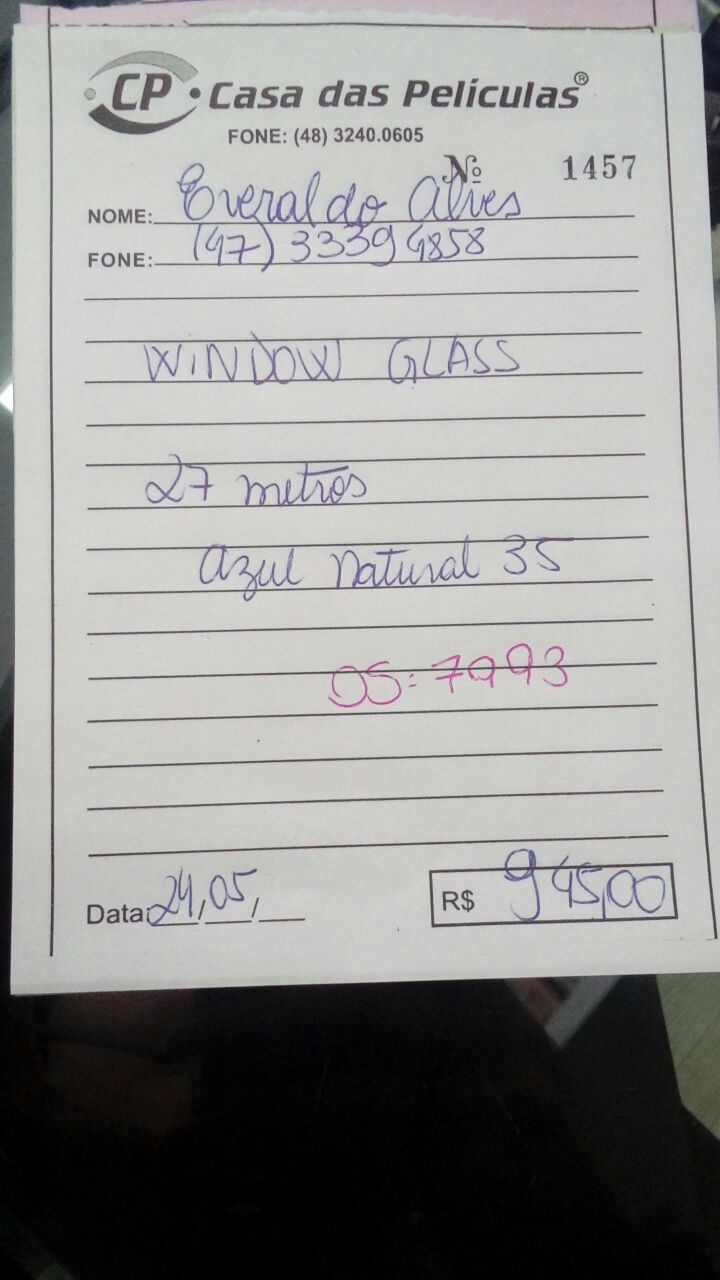 CP Casa das Películas®
FONE: (48) 3240.0605
Nº 1457
NOME: Everaldo Alves
FONE: (47) 3339 4858
WINDOW GLASS
27 metros
Azul Natural 35
OS: 7993
Data: 24/05/
R$ 945,00